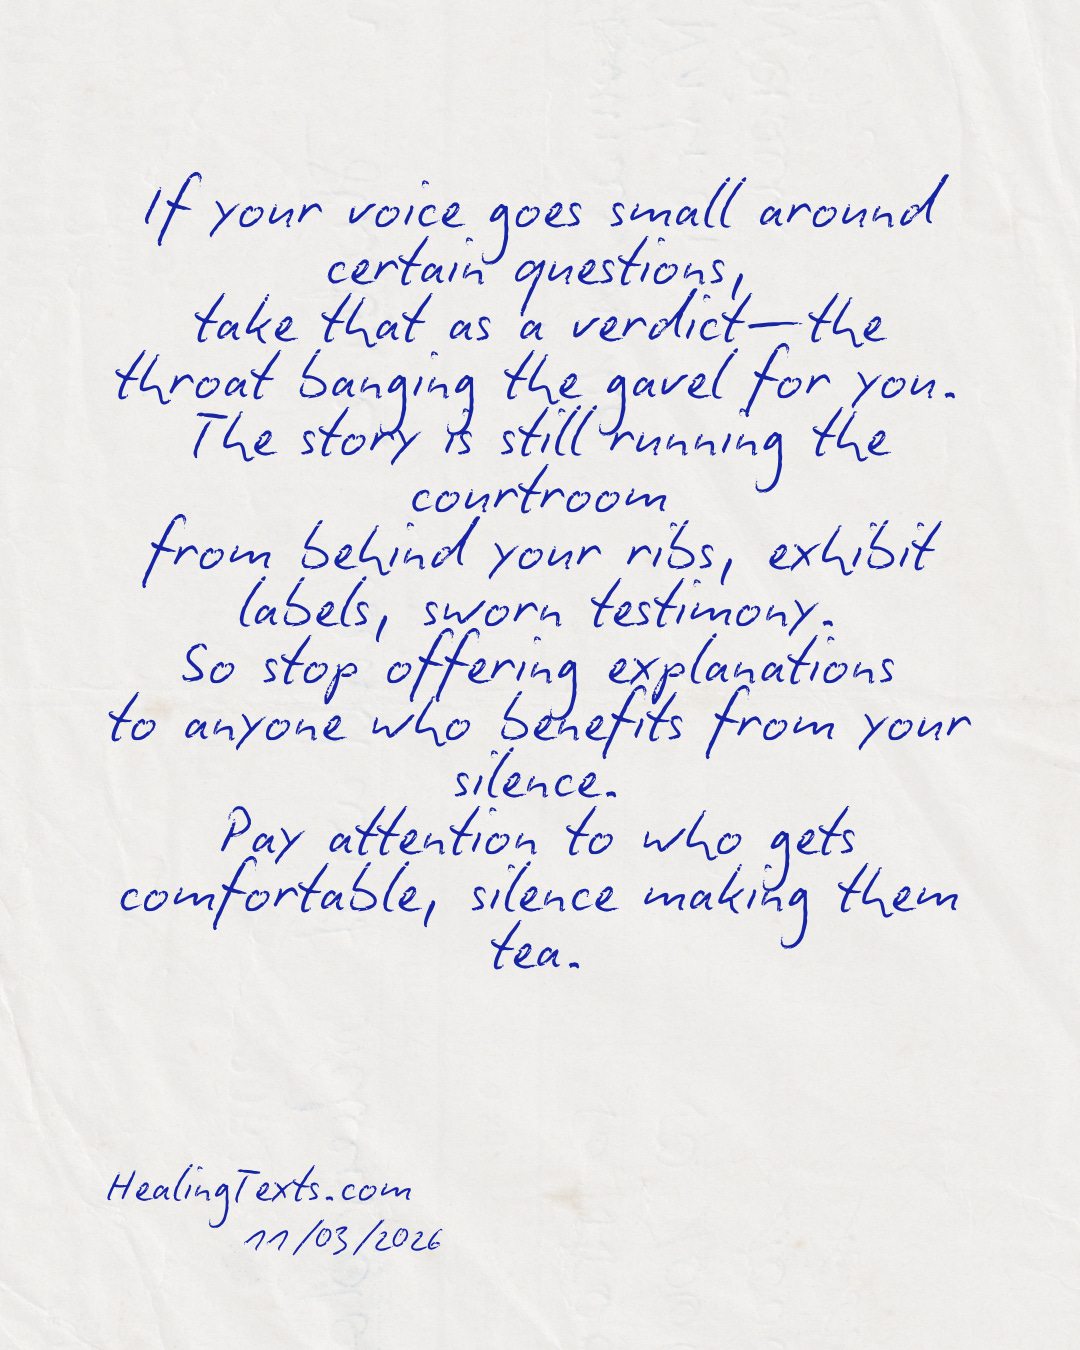 If your voice goes small around
certain questions,
take that as a verdict—the
throat banging the gavel for you.
The story is still running the
courtroom
from behind your ribs, exhibit
labels, sworn testimony.
So stop offering explanations
to anyone who benefits from your
silence.
Pay attention to who gets
comfortable, silence making them
tea.
HealingTexts.com
11/03/2026